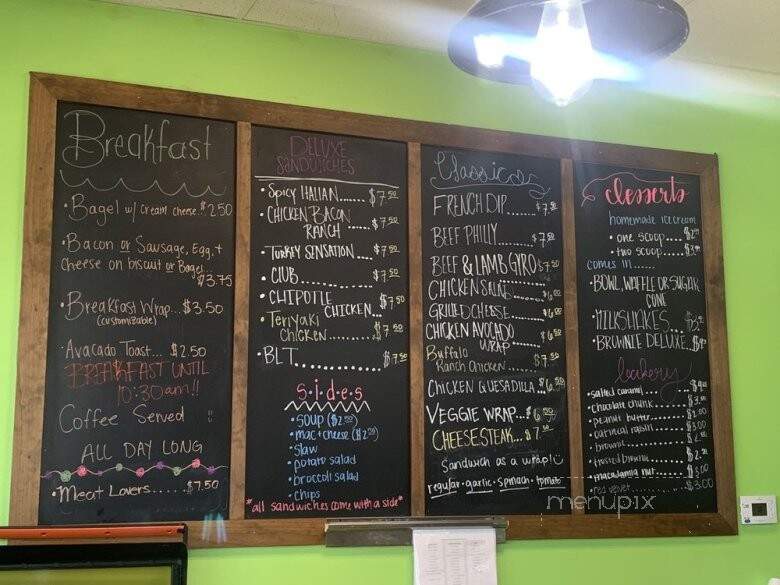 Breakfast
• Bagel w/ cream cheese.. $2.50
• Bacon or Sausage, Egg, +
cheese on biscuit or Bagel..
$3.75
• Breakfast Wrap... $3.50
(customizable)
• Avacado Toast... $2.50
BREAKFAST UNTIL
10:30am!!
Coffee Served
ALL DAY LONG
• Meat Lovers..... $7.50
DELUXE
SANDWICHES
• SPICY ITALIAN....... $7.50
• CHICKEN BACON
RANCH ... $7.50
• TURKEY SENSATION.... $7.50
• CLUB.............. $7.50
• CHIPOTLE
CHICKEN... $7.50
• Teriyaki
Chicken....... $7.50
• BLT............ $7.50
s.i.d.e.s
• SOUP ($2.50)
• mac + cheese ($2.50)
• slaw
• potato salad
• broccoli salad
• chips
*all sandwiches come with a side*
Classics
FRENCH DIP...... $7.50
BEEF PHILLY...... $7.50
BEEF & LAMB GYRO $7.50
CHICKEN SALAD
GRILLED CHEESE
CHICKEN AVOCADO
WRAP
Buffalo
Ranch Chicken..... $7.50
CHICKEN QUESADILLA.. $6.50
VEGGIE WRAP... $6.50
CHEESESTEAK... $7.50
Sandwich as a wrap!
regular • garlic • spinach • tomato
desserts
homemade ice cream
• one scoop....
• two scoop....
comes in ......
• BOWL, WAFFLE OR SUGAR
CONE
• MILKSHAKES....
• BROWNIE DELUXE..
bakery
• salted caramel
• chocolate chunk
• peanut butter
• oatmeal raisin $3.00
• brownie
• frosted brownie
• macadamia nut $3.00
red velvet $3.00
menupix